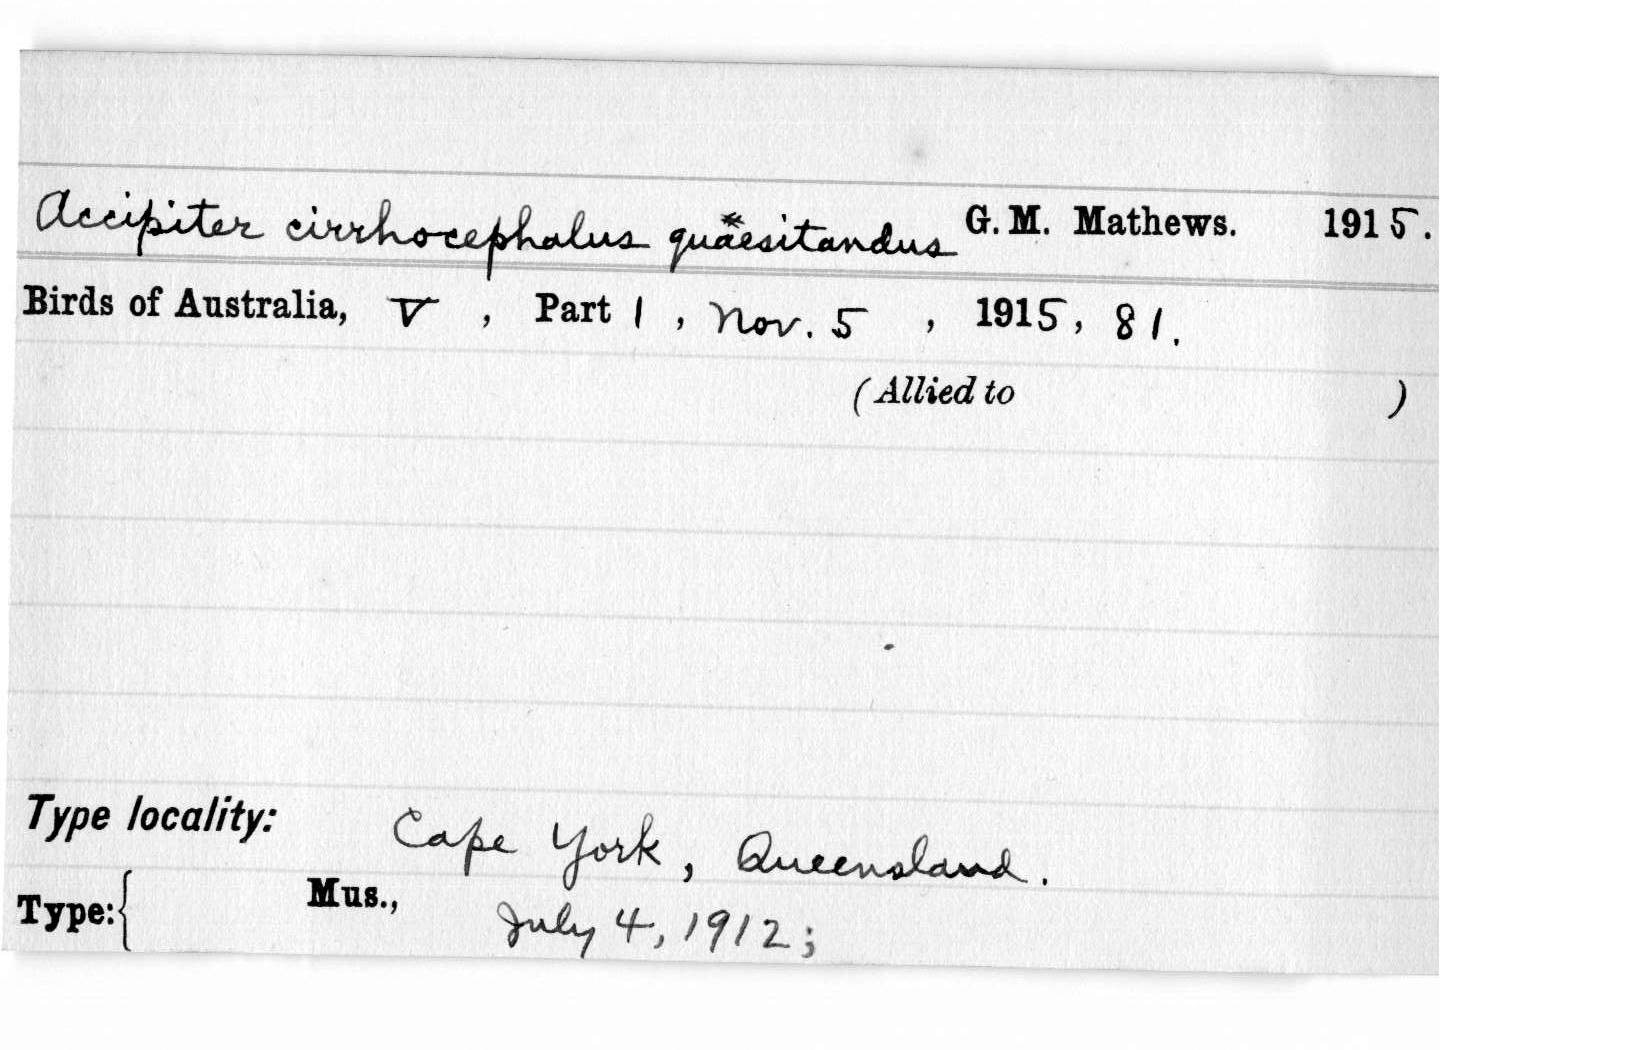 Accipiter cirrhocephalus quaesitandus G. M. Mathews. 1915.
Birds of Australia, V, Part 1, Nov. 5, 1915, 81.
(Allied to )
Type locality: Cape York, Queensland.
Type:{ Mus., July 4, 1912;